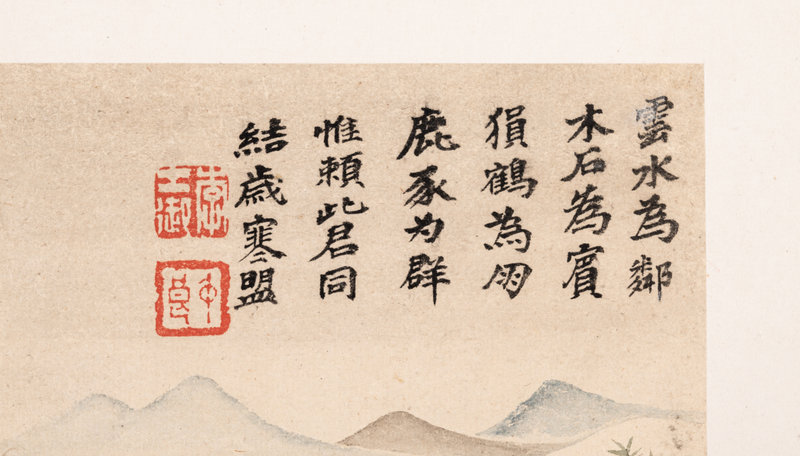 雲水為鄰
木石為賓
猿鶴為朋
鹿豕为群
惟賴此君同
結歲寒盟